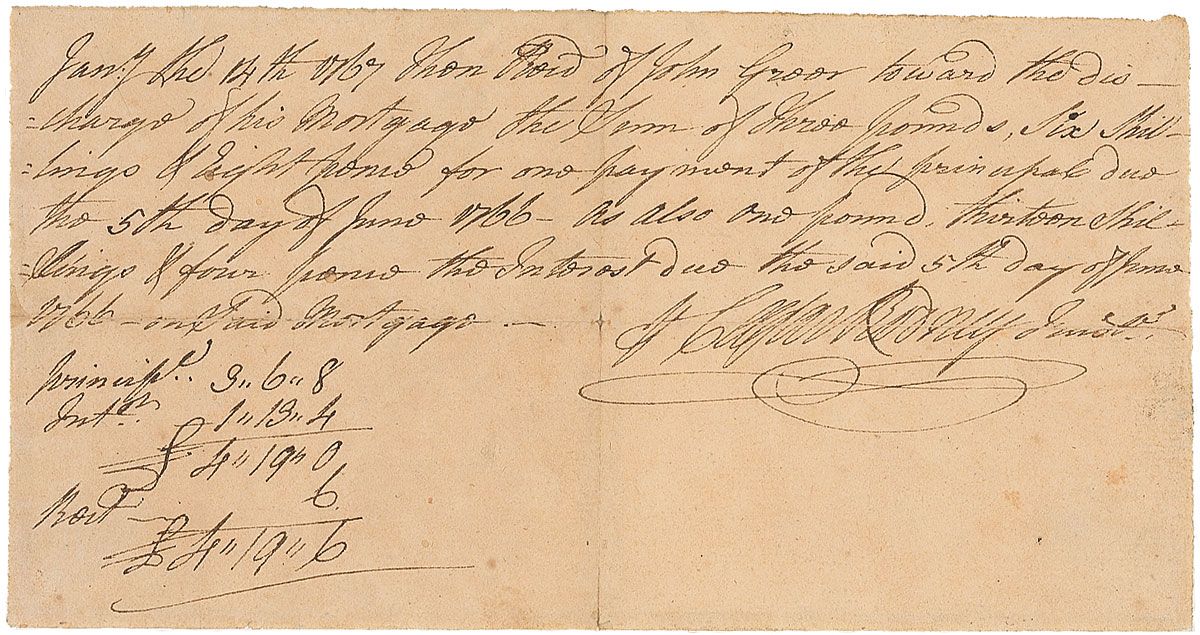 Jany. the 14th 1767 then Recd of John Greer toward the dis-
=charge of his Mortgage the Sum of three pounds, Six Shil-
=lings & Eight pence for one payment of the principal due
the 5th day of June 1766 - As also one pound, thirteen Shil-
=lings & four pence the Interest due the said 5th day of June
1766 - on said Mortgage -
Caesar Rodney Trustee
Principl. 3,, 6,, 8
Intst. 1,, 13,, 4
£ 4,, 19,, 0
Rect - 6.
£ 4,, 19,, 6